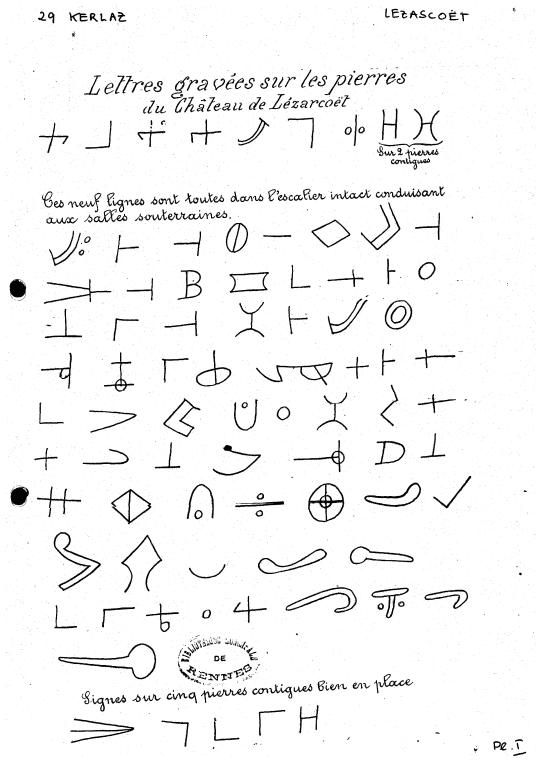 29 KERLAZ
LEZASCOËT
Lettres gravées sur les pierres
du Château de Lézarcoët
Sur 2 pierres
contigues
Ces neuf lignes sont toutes dans l'escalier intact conduisant
aux salles souterraines.
B
D
DE
RENNES
Signes sur cinq pierres contigues bien en place
H
Pl. I